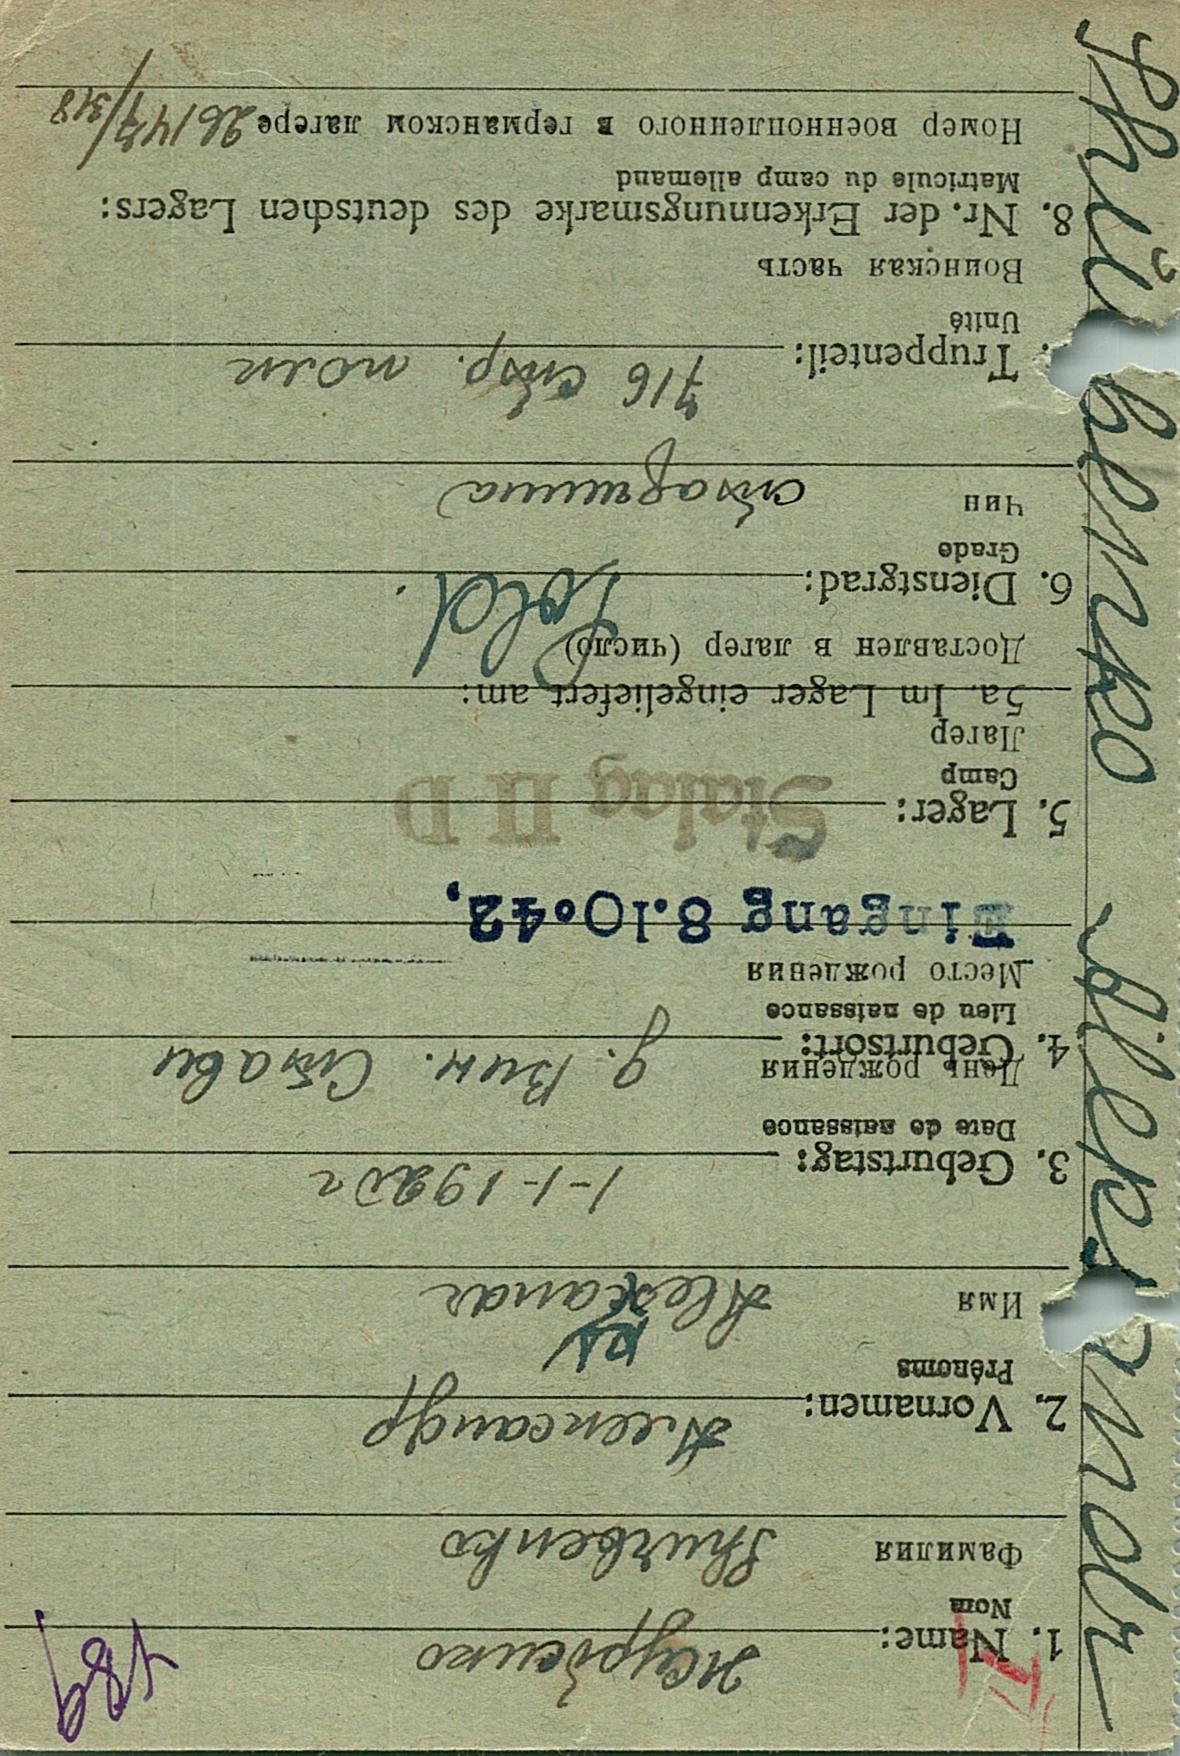 1. Name: Журбенко
Nom
Фамилия Shurbenko
2. Vornamen: Александр
Prénoms
Имя Alexandr
3. Geburtstag: 1-1-1920 г
Date de naissance
День рождения
4. Geburtsort: д. Вин. Стави
Lieu de naissance
Место рождения
Eingang 8.10.42.
5. Lager: Stalag II D
Camp
Лагер
5a. Im Lager eingeliefert am:
Доставлен в лагер (число)
6. Dienstgrad: Sold.
Grade
Чин старшина
Truppenteil: 716 стр. полк
Unité
Воинская часть
8. Nr. der Erkennungsmarke des deutschen Lagers:
Matricule du camp allemand
Номер военнопленного в германском лагере 26147/318